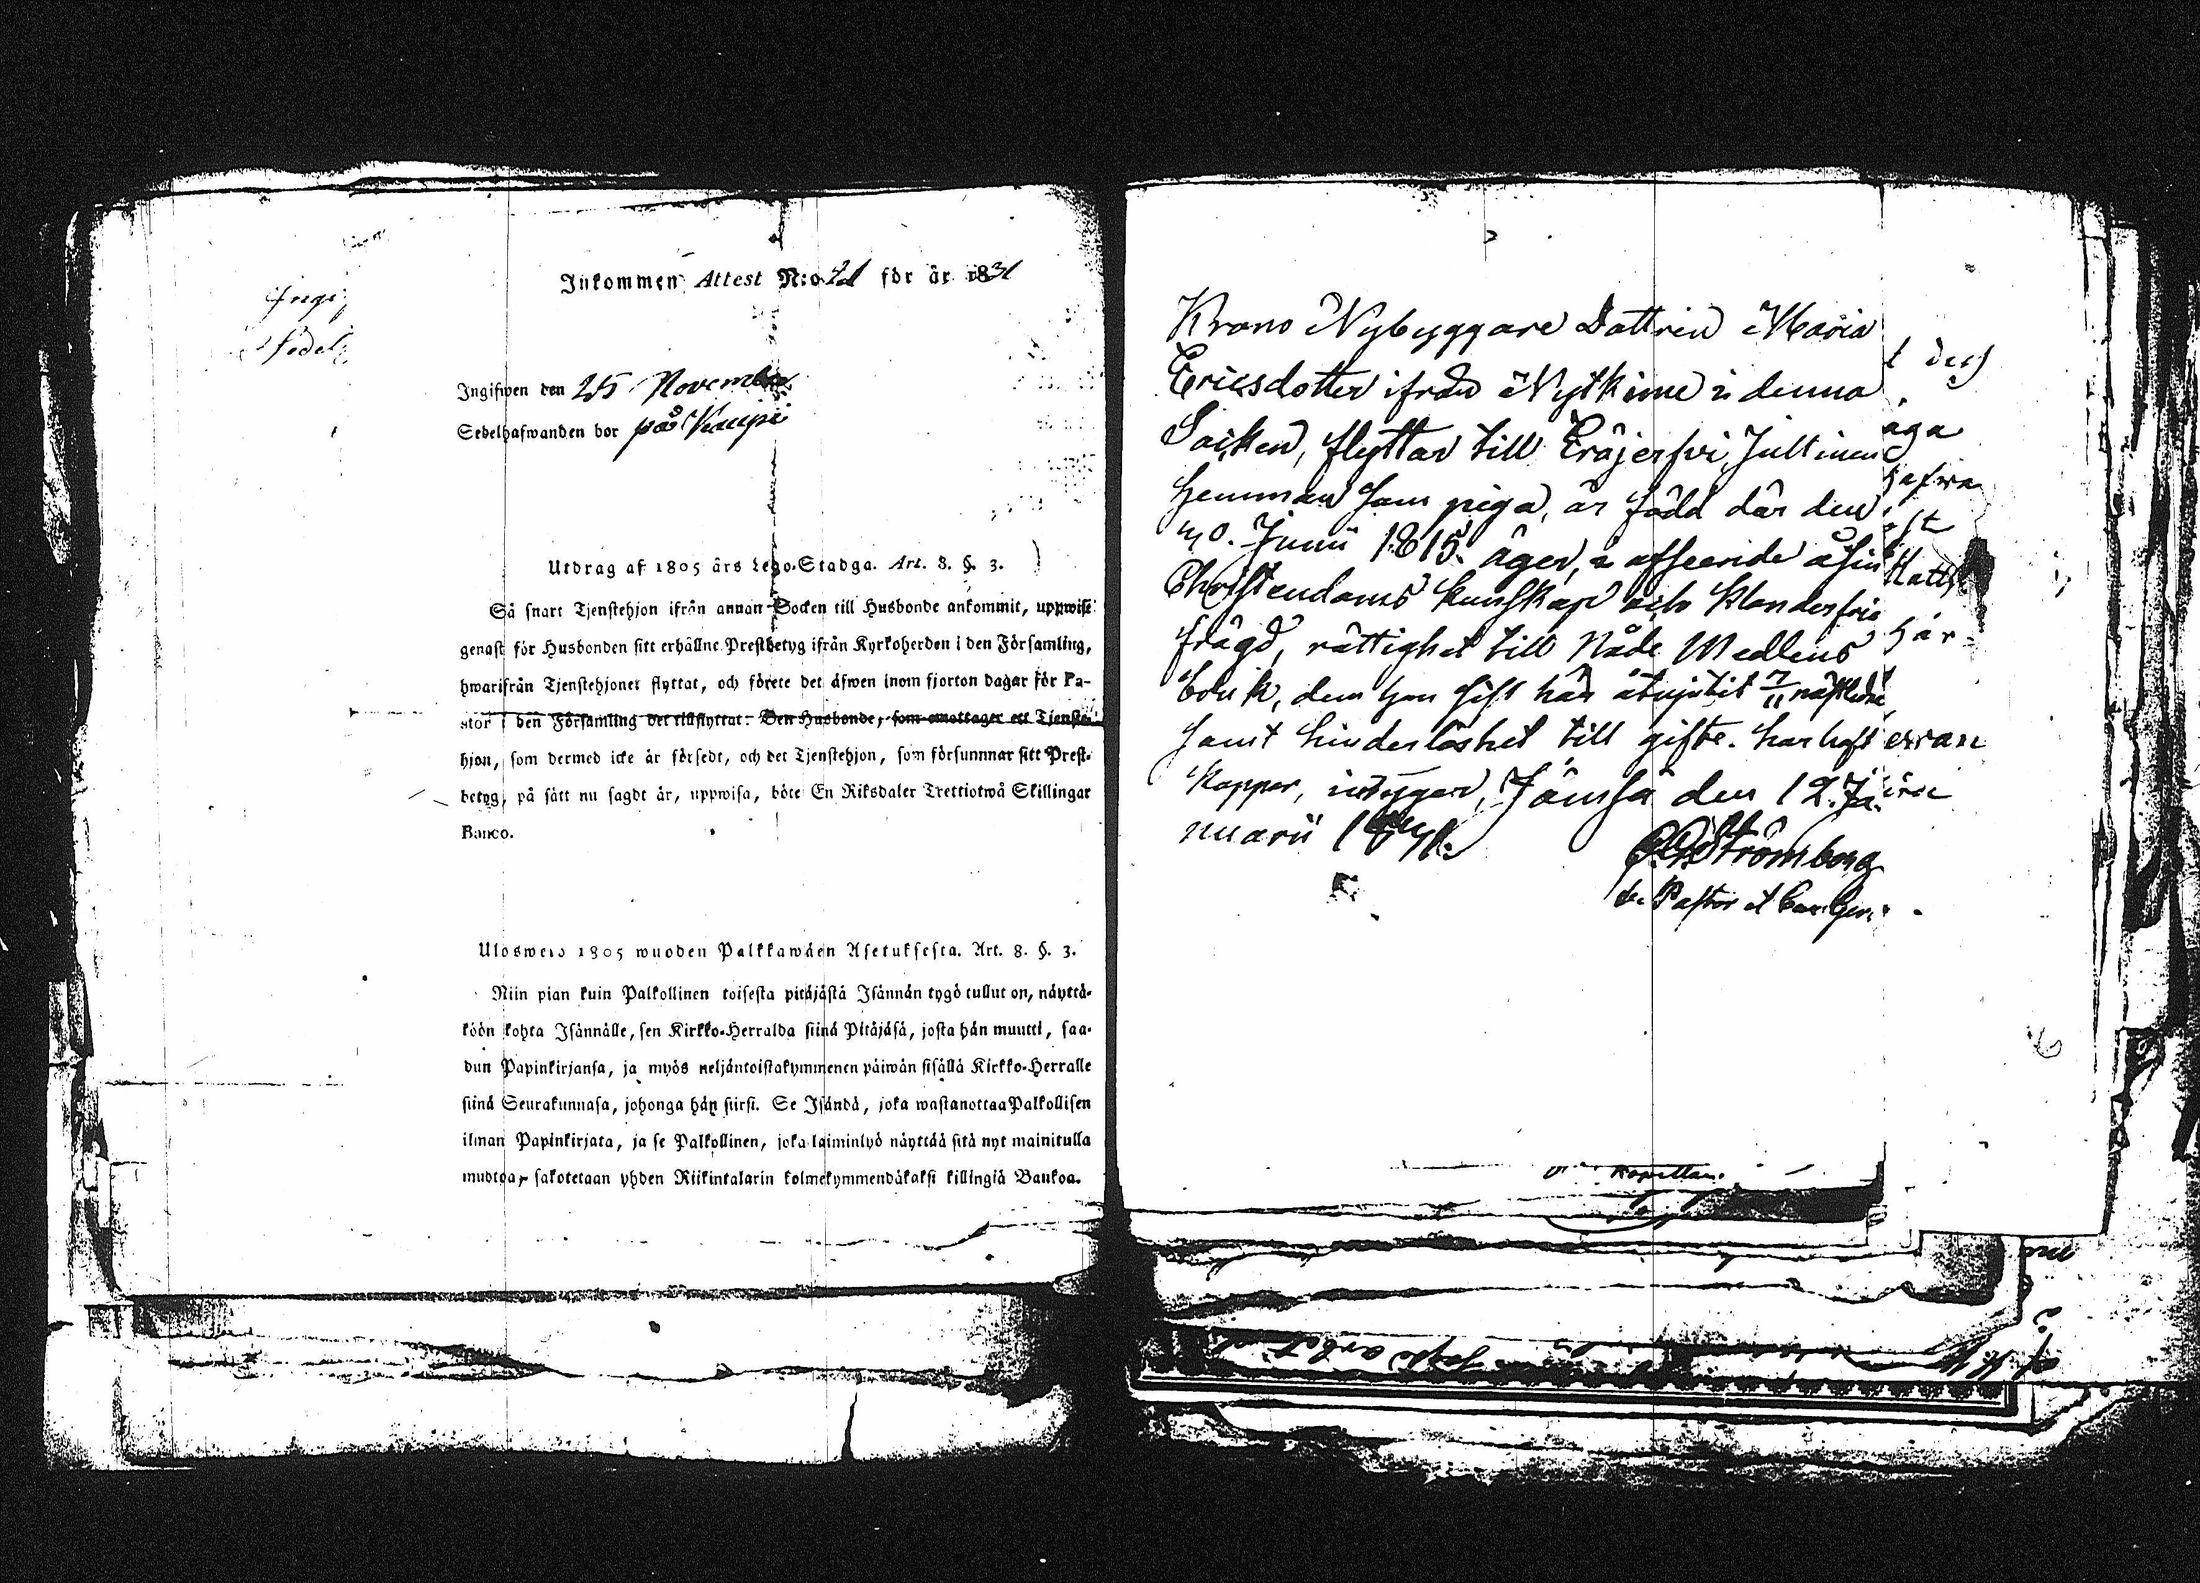 Inkommen Attest N:o 21 för år 1831
Ingifwen den 25 November
Sedelhafwanden bor på Kaupi
Utdrag af 1805 års Lego-Stadga. Art. 8. §. 3.
Så snart Tjenstehjon ifrån annan Socken till Husbonde ankommit, uppwise
genast för Husbonden sitt erhållne Prestbetyg ifrån Kyrkoherden i den Församling,
hwarifrån Tjenstehjonet flyttat, och förete det äfwen inom fjorton dagar för Pa-
stor i den Församling det tillflyttat. Den Husbonde, som emottager ett Tjenste-
hjon, som dermed icke är försedt, och det Tjenstehjon, som försummar sitt Prest-
betyg, på sätt nu sagdt är, uppwisa, böte En Riksdaler Trettiotwå Skillingar
Banco.
Ulosweto 1805 wuoden Palkkawäen Asetuksesta. Art. 8. §. 3.
Niin pian kuin Palkollinen toisesta pitäjästä Isännän tygö tullut on, näyttä-
köön kohta Isännälle, sen Kirkko-Herralda siinä Pitäjäsä, josta hän muutti, saa-
dun Papinkirjansa, ja myös neljäntoistakymmenen päiwän sisällä Kirkko-Herralle
siinä Seurakunnasa, johonga hän siirsi. Se Isändä, joka wastanottaa Palkollisen
ilman Papinkirjata, ja se Palkollinen, joka laiminlyö näyttää sitä nyt mainitulla
muotoa, sakotetaan yhden Riikintalarin kolmekymmendäkaksi killingiä Baukoa.
Krono Nybyggare Dottren Maria
Ericsdotter ifrån Nytkime i denna
Socken, flyttar till Eräjerfvi Jultinen
hemman som piga, är född där den
20. Junii 1815. äger, i afseende å sin
Christendoms kunskap och klanderfria
frägd, rättighet till Nåde Medlens
bruk, dem hon sist här åtnjutit 7/11 nästledne
samt hinderlöshet till gifte. har haft
Koppor, intygar, Jämsä den 12. Ja-
nuarii 1831.
Strömborg
v. Pastor
aga
hafwa
här